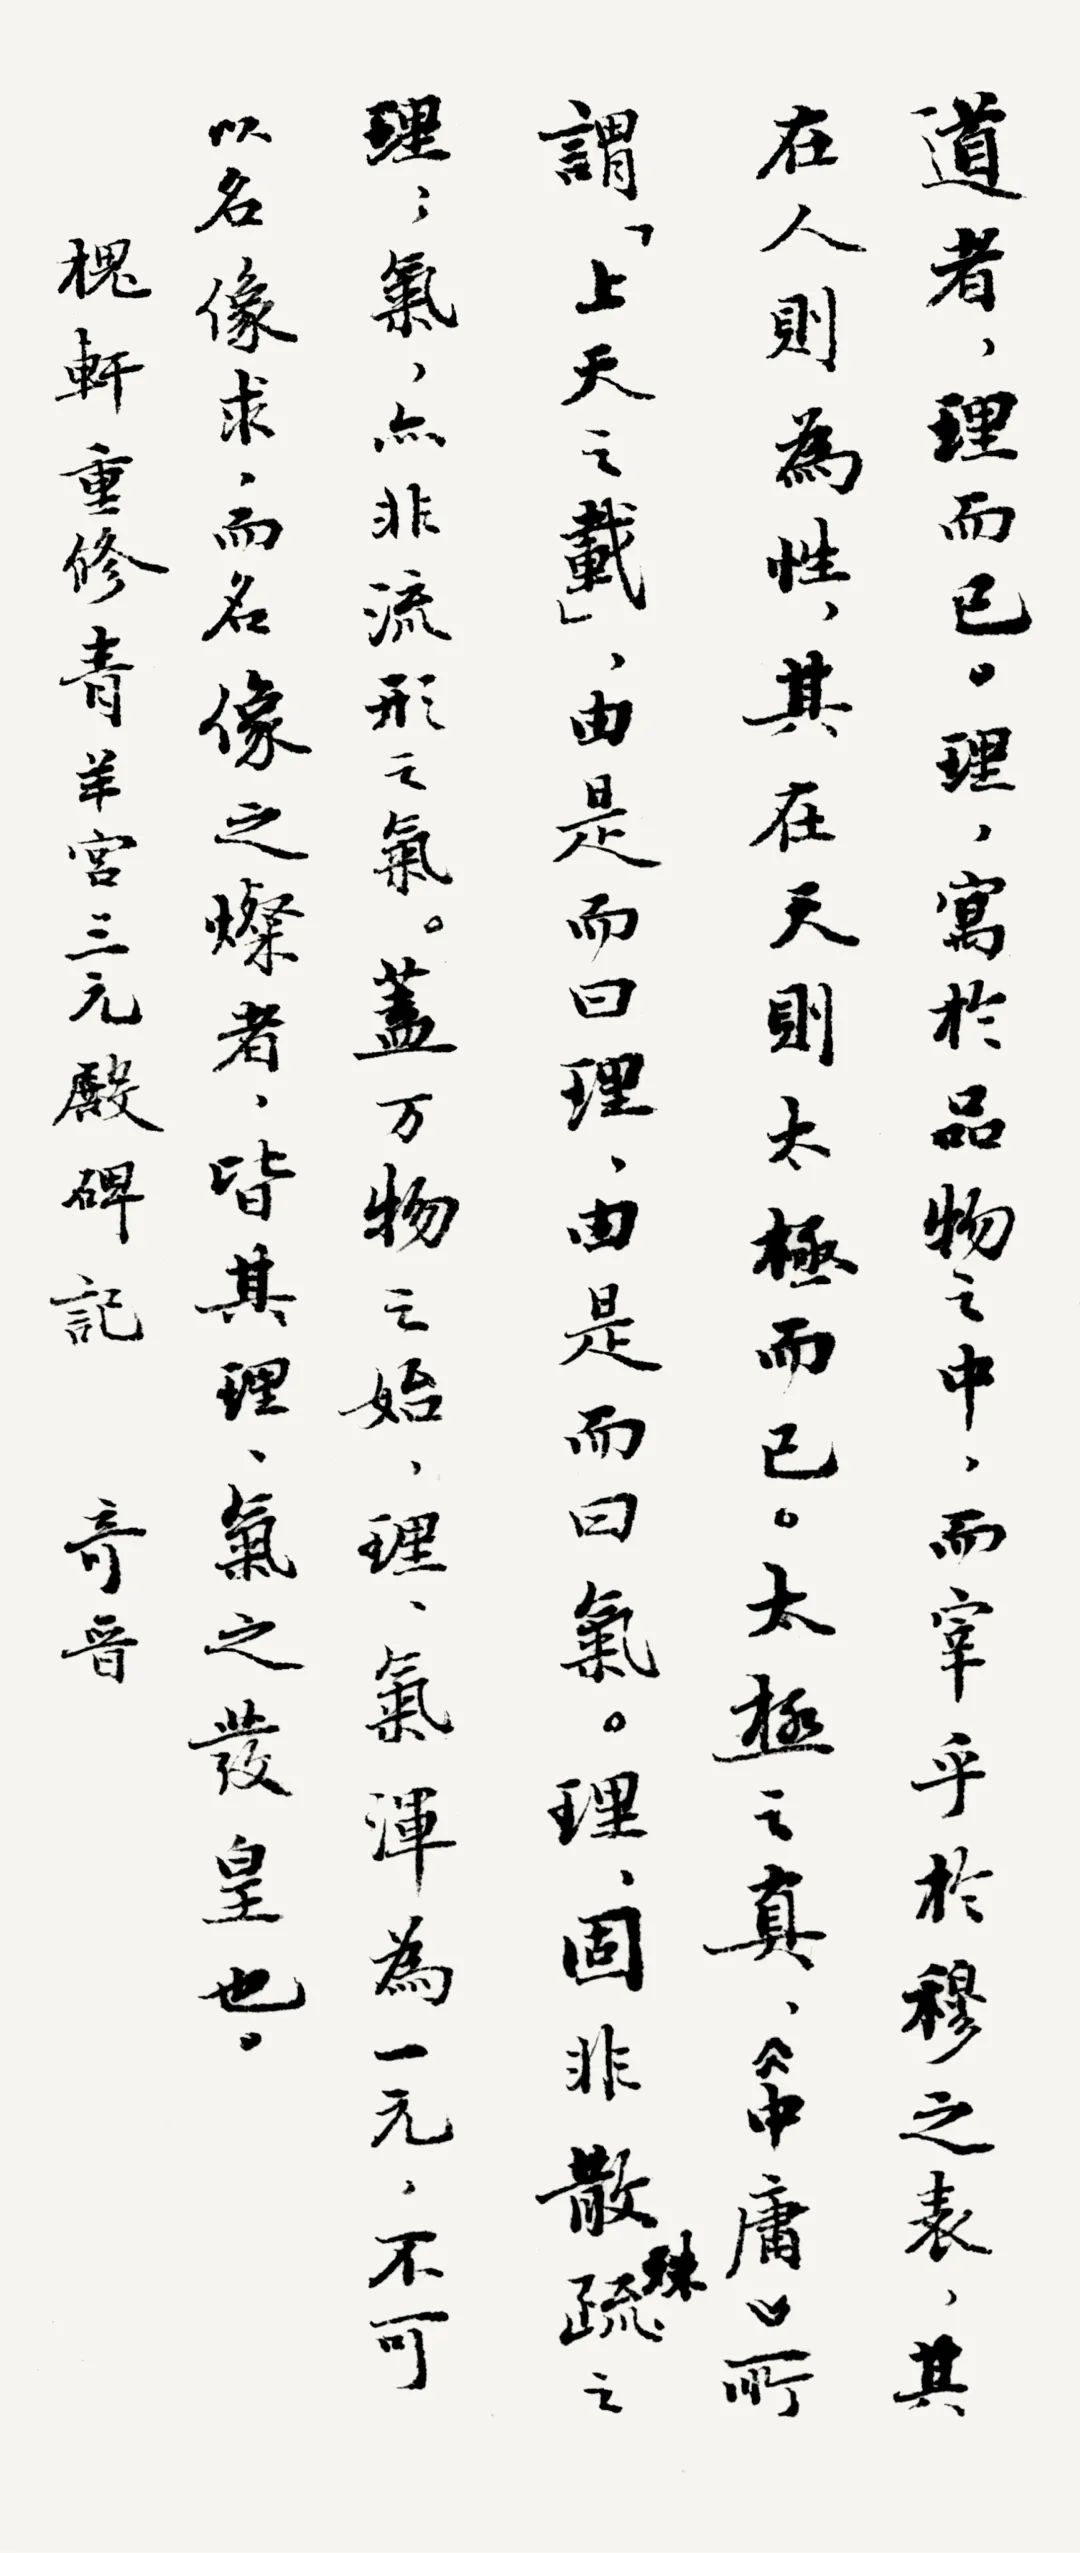 道者，理而已。理，寓於品物之中，而宰乎於穆之表，其
在人則為性，其在天則太極而已。太極之真，《中庸》所
謂「上天之載」，由是而曰理，由是而曰氣。理，固非散疏殊之
理；氣，亦非流形之氣。蓋万物之始，理、氣渾為一元，不可
以名像求，而名像之燦者，皆其理、氣之發皇也。
槐軒重修青羊宮三元殿碑記 奇晋